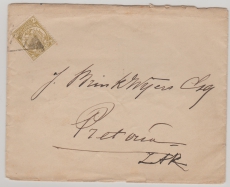 J. Brink Wyers Esq
Pretoria
ZAR